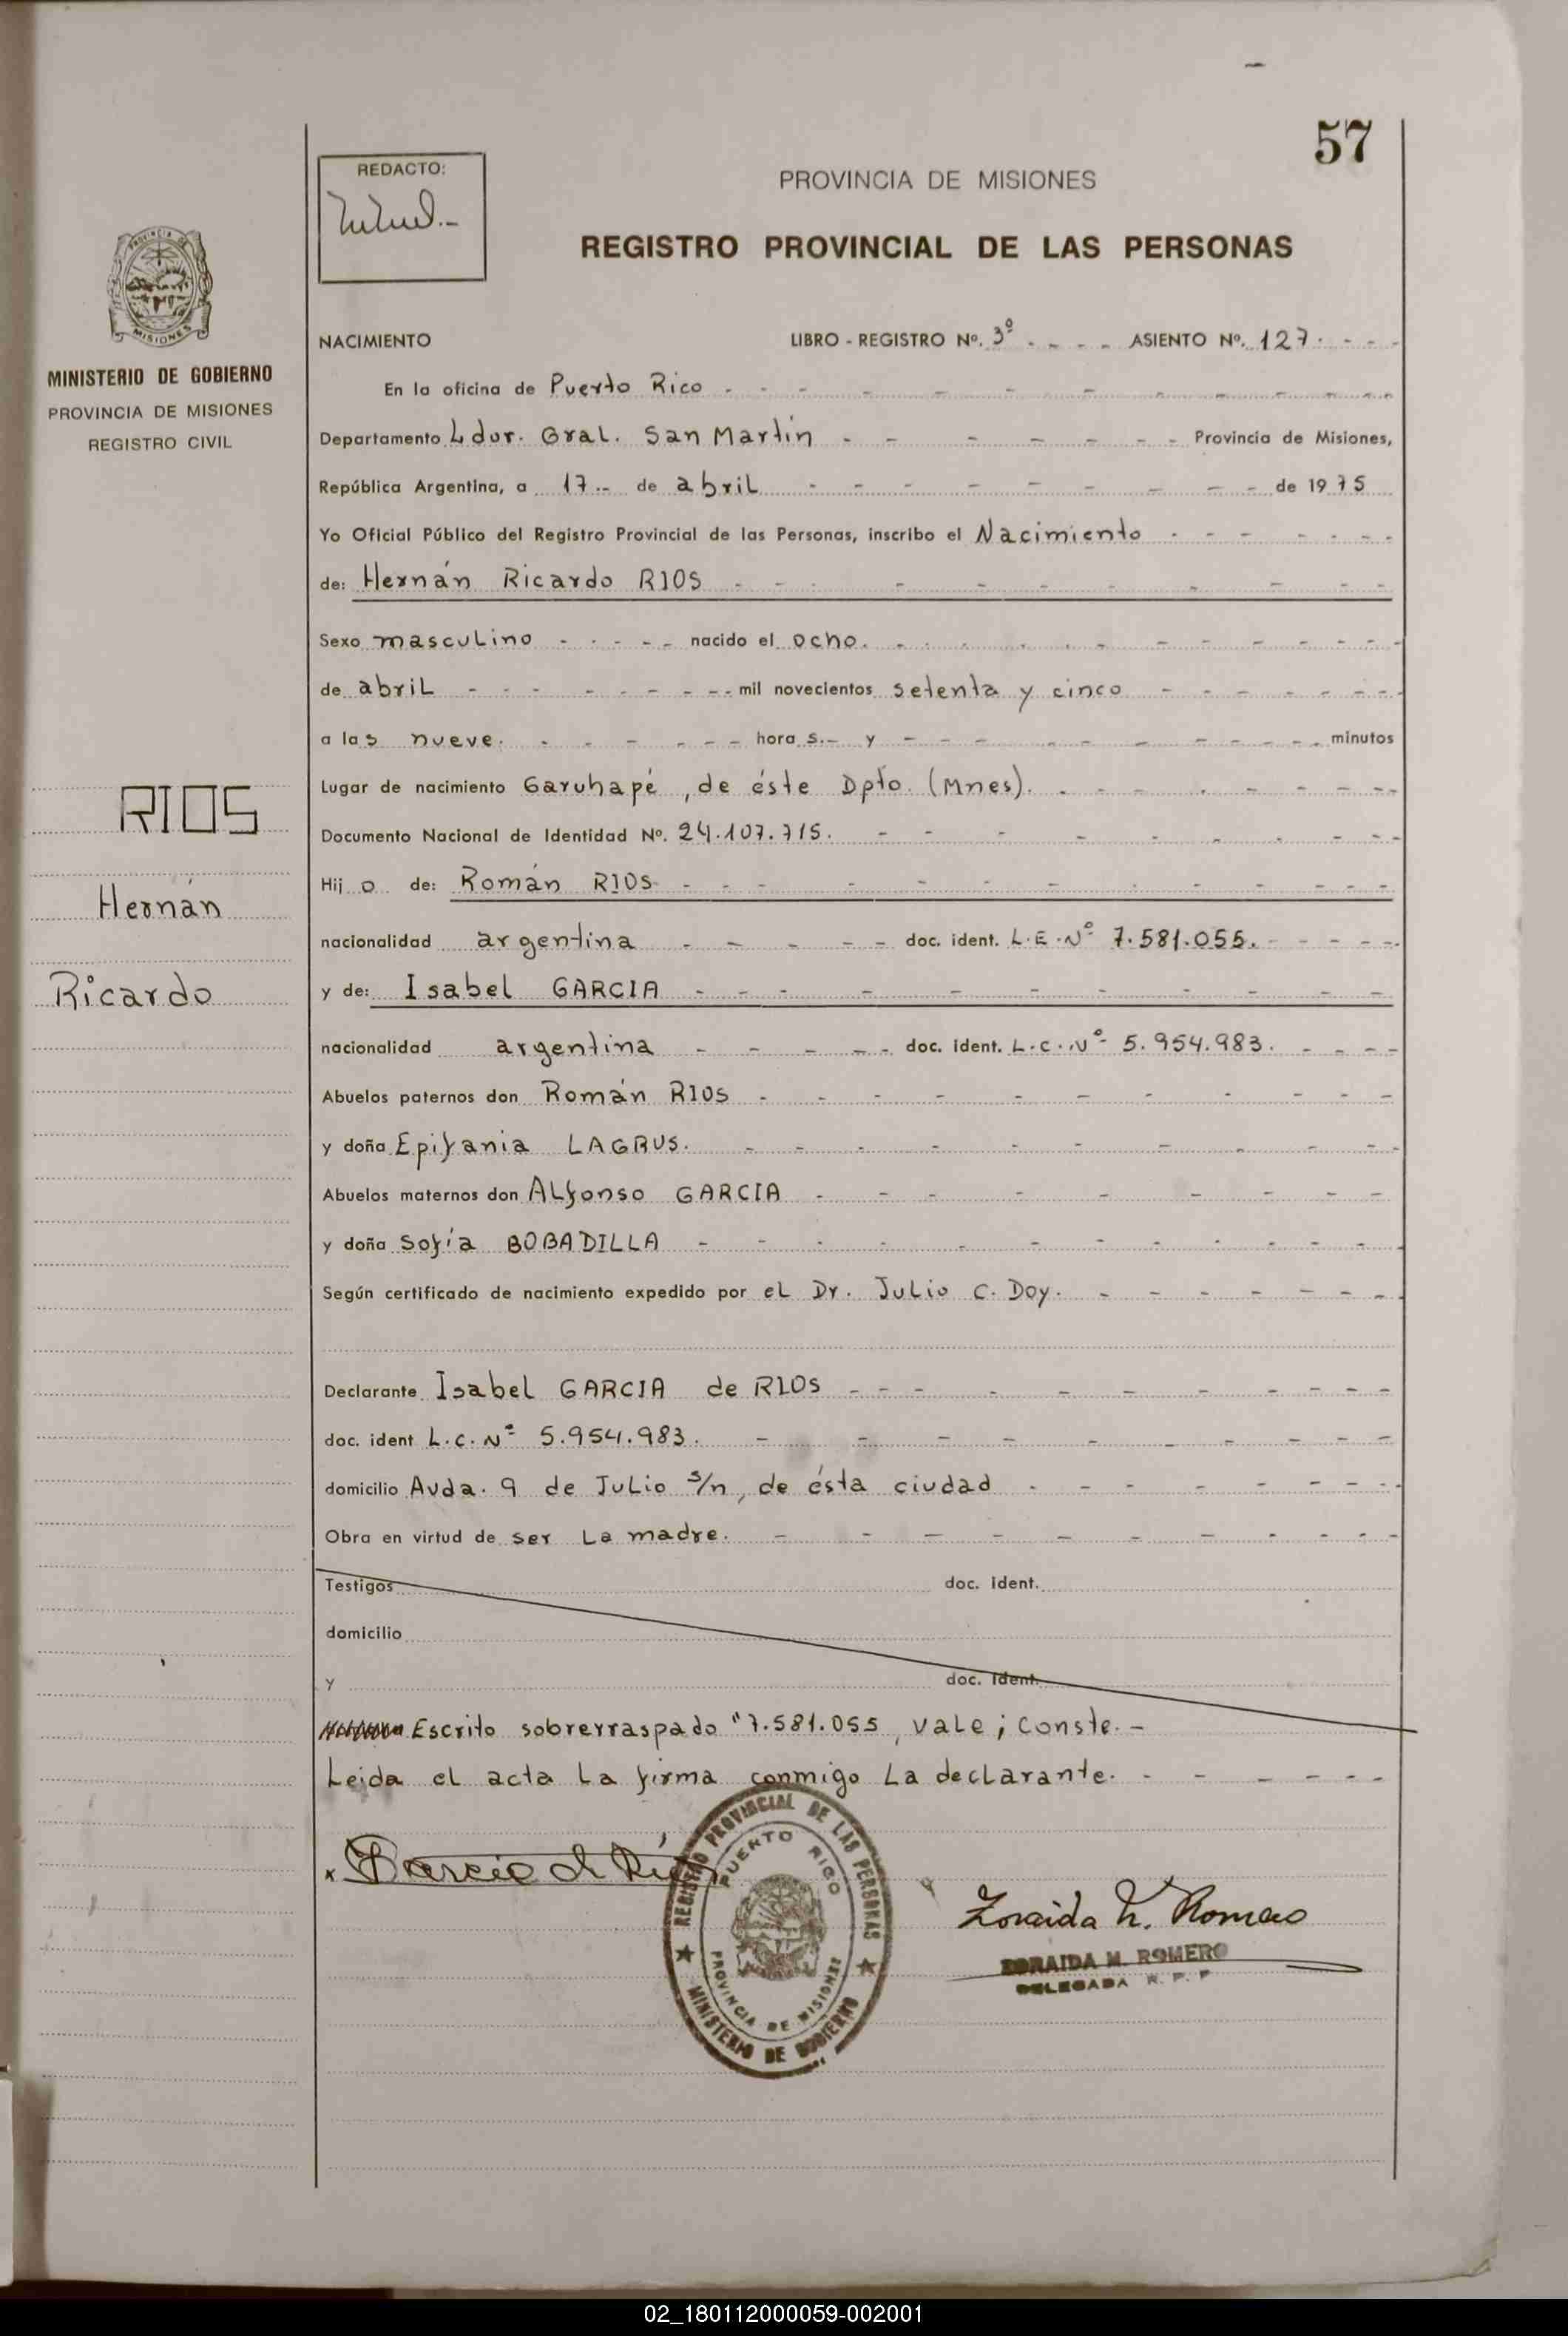 57
REDACTO:
PROVINCIA DE MISIONES
REGISTRO PROVINCIAL DE LAS PERSONAS
PROVINCIA DE
MISIONES
MINISTERIO DE GOBIERNO
PROVINCIA DE MISIONES
REGISTRO CIVIL
RIOS
Hernán
Ricardo
NACIMIENTO LIBRO - REGISTRO Nº. 3º - - - - ASIENTO Nº. 127. - - -
En la oficina de Puerto Rico - - - - - - - - - -
Departamento Ldor. Gral. San Martín - - - - - - - - Provincia de Misiones,
República Argentina, a 17.- de abril - - - - - - - - de 1975
Yo Oficial Público del Registro Provincial de las Personas, inscribo el Nacimiento - - - - - - -
de: Hernán Ricardo RIOS - - - - - - - - - -
Sexo masculino - - - - - nacido el ocho. - - - - - - - - - - -
de abril - - - - - - - - mil novecientos setenta y cinco - - - - - - -
a las nueve. - - - - - - hora s.- y - - - - - - - - - - minutos
Lugar de nacimiento Garuhapé, de éste Dpto. (Mnes). - - - - - - - -
Documento Nacional de Identidad Nº. 24.107.715. - - - - - - - - -
Hij o de: Román RIOS - - - - - - - - - - -
nacionalidad argentina - - - - - doc. ident. L.E.Nº 7.581.055. - - - - -
y de: Isabel GARCIA - - - - - - - - - -
nacionalidad argentina - - - - - doc. ident. L.C.Nº 5.954.983. - - - -
Abuelos paternos don Román RIOS - - - - - - - - - - -
y doña Epifania LAGRUS. - - - - - - - - - -
Abuelos maternos don Alfonso GARCIA - - - - - - - - -
y doña Sofía BOBADILLA - - - - - - - - - - -
Según certificado de nacimiento expedido por el Dr. Julio C. Doy. - - - - - - -
Declarante Isabel GARCIA de RIOS - - - - - - - - - -
doc. ident L.C.Nº 5.954.983. - - - - - - - - - -
domicilio Avda. 9 de Julio s/n, de ésta ciudad - - - - - - - -
Obra en virtud de ser La madre. - - - - - - - - - - -
Testigos doc. ident.
domicilio
y doc. ident.
Escrito sobrerraspado "7.581.055, vale; conste.-
Leida el acta la firma conmigo la declarante. - - - - - -
x Garcia de Ríos
REGISTRO PROVINCIAL DE LAS PERSONAS
PUERTO RICO
PROVINCIA DE MISIONES
MINISTERIO DE GOBIERNO
Zoraida M. Romero
ZORAIDA M. ROMERO
DELEGADA R. P. P
02_180112000059-002001